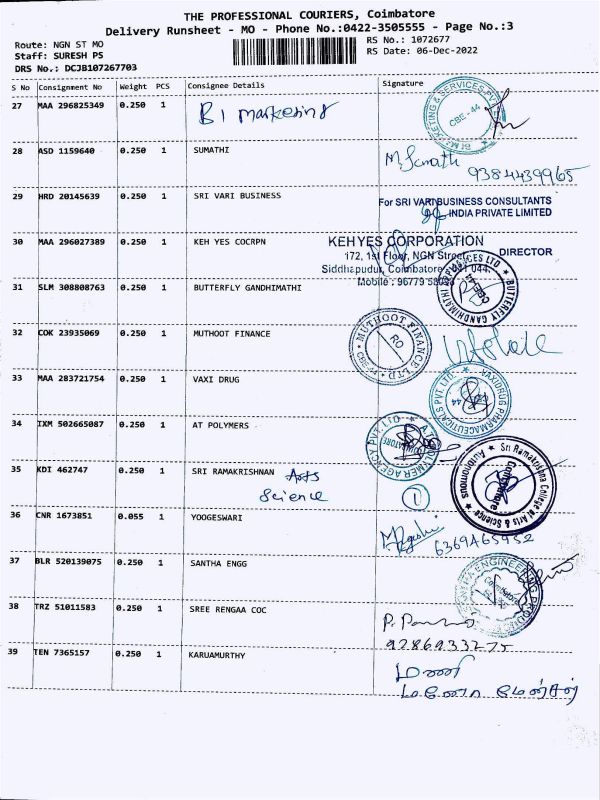 THE PROFESSIONAL COURIERS, Coimbatore
Delivery Runsheet - MO - Phone No.:0422-3505555 - Page No.:3
Route: NGN ST MO
RS No.: 1072677
Staff: SURESH PS
RS Date: 06-Dec-2022
DRS No.: DCJB107267703
S No Consignment No Weight PCS Consignee Details Signature
27 MAA 296825349 0.250 1 B1 Marketing
CBE - 44
28 ASD 1159640 0.250 1 SUMATHI
9384439965
29 HRD 20145639 0.250 1 SRI VARI BUSINESS
For SRI VARI BUSINESS CONSULTANTS
INDIA PRIVATE LIMITED
DIRECTOR
30 MAA 296027389 0.250 1 KEH YES COCRPN
KEHYES CORPORATION
172, 1st Floor, NGN Street
Siddhapudur, Coimbatore 641 044.
Mobile : 96779
31 SLM 308808763 0.250 1 BUTTERFLY GANDHIMATHI
BUTTERFLY GANDHIMATHI APPLIANCES LTD
32 COK 23935069 0.250 1 MUTHOOT FINANCE
MUTHOOT FINANCE LTD
RO
33 MAA 283721754 0.250 1 VAXI DRUG
VAXIDRUG PHARMACEUTICALS PVT. LTD.
44
34 IXM 502665087 0.250 1 AT POLYMERS
35 KDI 462747 0.250 1 SRI RAMAKRISHNAN Arts
Science
1
Sri Ramakrishna College of Arts & Science
Autonomous
Coimbatore
36 CNR 1673851 0.055 1 YOOGESWARI
6369465952
37 BLR 520139075 0.250 1 SANTHA ENGG
38 TRZ 51011583 0.250 1 SREE RENGAA COC
9286933275
39 TEN 7365157 0.250 1 KARUAMURTHY
மணி